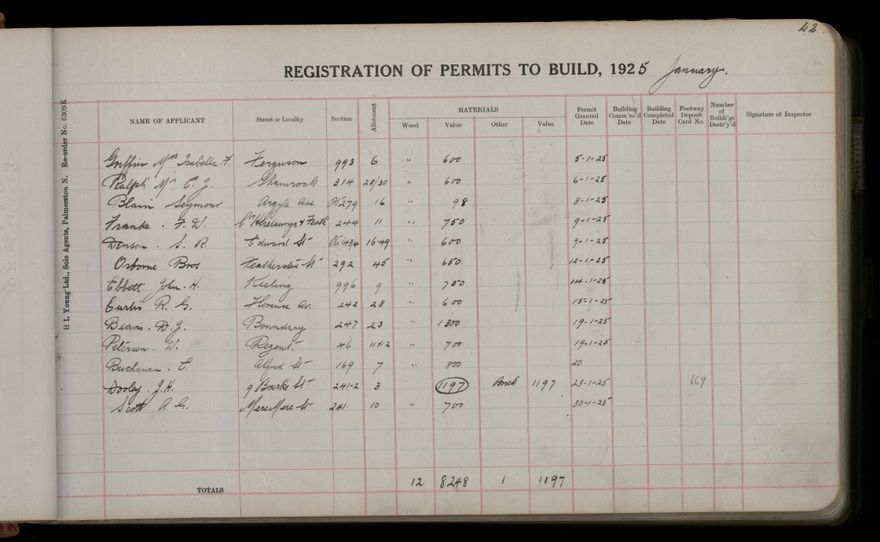 42
REGISTRATION OF PERMITS TO BUILD, 1925 January.
H L Young Ltd., Sole Agents, Palmerston N. Re-order No. 6309K
NAME OF APPLICANT Street or Locality Section Allotment MATERIALS Wood Value Other Value Permit Granted Date Building Comm'nc'd Date Building Completed Date Footway Deposit Card No. Number of Build'gs Destr'y'd Signature of Inspector
Griffin Mrs Isabella F. Ferguson 993 6 " 600 5-1-25
Ralph Mr C. J. Shamrock 314 28/30 " 600 6-1-25
Blair Seymour Argyle Ave 279 16 " 98 8-1-25
Franks. F. W. Cnr Heretaunga & Feath 244 11 " 750 9-1-25
Denson. S. R. Edward St 1494 16-49 " 600 9-1-25
Osborne Bros Featherston St 292 45 " 650 12-1-25
Ebbett John. H. Keeling 996 9 " 750 14-1-25
Curtis R. G. Florence Av. 242 28 " 600 15-1-25
Beavis. D. J. Boundary 247 23 " 1300 19-1-25
Peterson. W. Regent. 46 11+12 " 700 19-1-25
Buchanan. E. Alfred St 169 7 " 800 20
Dooley. J. H. 9 Bourke St 241-2 3 1197 Brick 1197 23-1-25 669
Scott A. G. Mere Mere St 241. 10 " 700 30-1-25
TOTALS 12 8248 1 1197